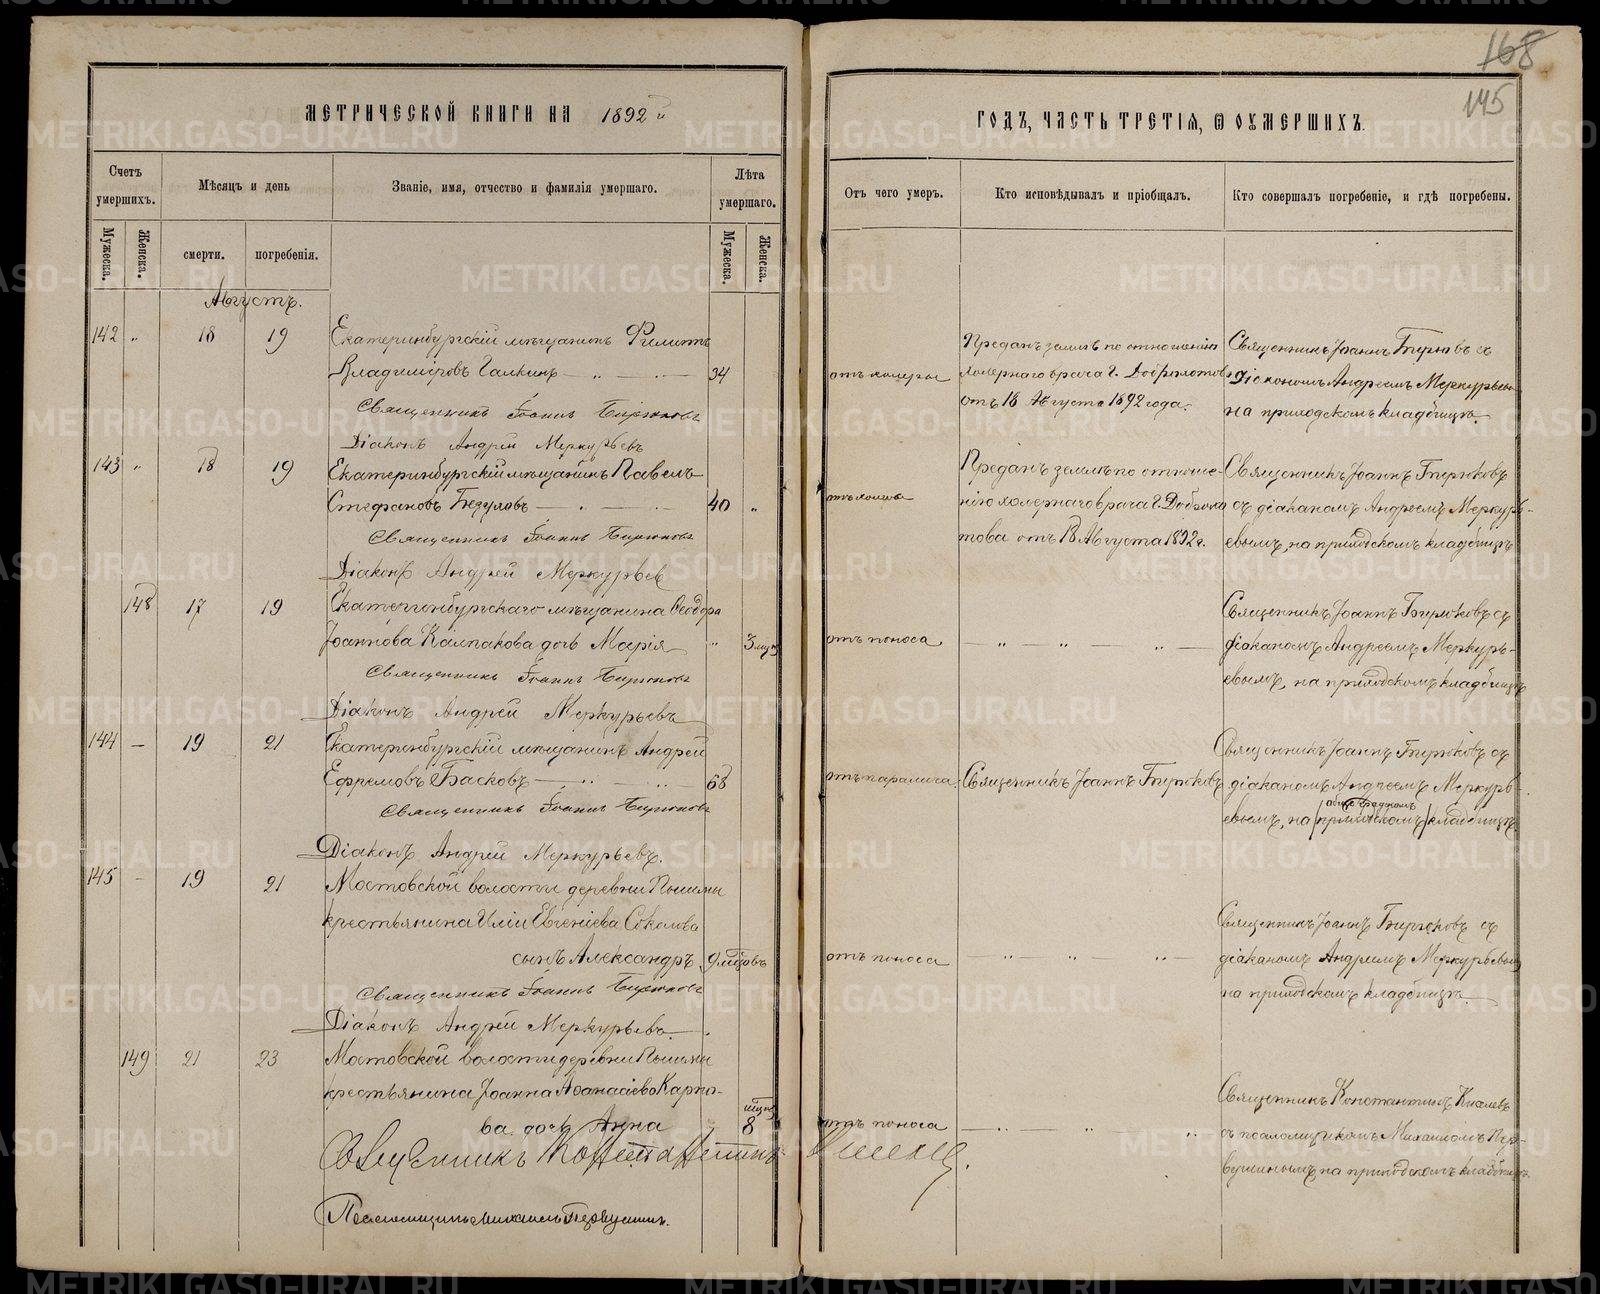 168
145
МЕТРИЧЕСКОЙ КНИГИ НА 1892 й
ГОДЪ, ЧАСТЬ ТРЕТІЯ, Ѿ ОУМЕРШИХЪ.
Счетъ умершихъ.
Мѣсяцъ и день
Званіе, имя, отчество и фамилія умершаго.
Лѣта умершаго.
Отъ чего умеръ.
Кто исповѣдывалъ и пріобщалъ.
Кто совершалъ погребеніе, и гдѣ погребены.
Мужеска.
Женска.
смерти.
погребенія.
Мужеска.
Женска.
Августъ.
142 " 18 19 Екатеринбургскій мѣщанинъ Филиппъ
Владиміровъ Галкинъ 34
Священникъ Іоаннъ Бирюковъ
Діаконъ Андрей Меркурьевъ
отъ холеры
Преданъ землѣ по отношенію
холернаго врача Г. Доброхотова
отъ 18 Августа 1892 года.
Священникъ Іоаннъ Бирюковъ съ
діакономъ Андреемъ Меркурьевымъ
на приходскомъ кладбищѣ.
143 " 18 19 Екатеринбургскій мѣщанинъ Павелъ
Стефановъ 40 "
Священникъ Іоаннъ Бирюковъ
Діаконъ Андрей Меркурьев
отъ холеры
Преданъ землѣ по отноше-
нію холернаго врача Г. Доброхо
това отъ 18 Августа 1892 г.
Священникъ Іоаннъ Бирюковъ
съ діакономъ Андреемъ Меркурь-
евымъ, на приходскомъ кладбищѣ
148 17 19 Екатеринбургскаго мѣщанина Ѳеодора
Іоаннова Калпакова дочь Марія " 3 мѣс
Священникъ Іоаннъ Бирюковъ
Діаконъ Андрей Меркурьевъ
отъ поноса
" " "
Священникъ Іоаннъ Бирюковъ съ
діакономъ Андреемъ Меркурь-
евымъ, на приходскомъ кладбищѣ
144 – 19 21 Екатеринбургскій мѣщанинъ Андрей
Ефремовъ Басковъ 68
Священникъ Іоаннъ Бирюковъ
Діаконъ Андрей Меркурьевъ.
отъ паралича
Священникъ Іоаннъ Бирюковъ
Священникъ Іоаннъ Бирюковъ съ
діакономъ Андреемъ Меркурь-
евымъ, на приходскомъ кладбищѣ.
145 – 19 21 Мостовской волости деревни Пышмы
крестьянина Иліи Евгеніева Соколова
сынъ Александръ 9 мѣсяцовъ
Священникъ Іоаннъ Бирюковъ
Діаконъ Андрей Меркурьевъ.
отъ поноса
" " "
Священникъ Іоаннъ Бирюковъ съ
діакономъ Андреемъ Меркурьевымъ
на приходскомъ кладбищѣ.
149 21 23 Мостовской волости деревни Пышмы
крестьянина Іоанна Аѳанасіева Карпо-
ва дочь Анна 8 мѣсяц
Священникъ Константинъ Киселевъ.
Псаломщикъ Михаилъ Первушинъ.
отъ поноса
" " "
Священникъ Константинъ Киселевъ
съ псаломщикомъ Михаиломъ Пер-
вушинымъ на приходскомъ кладбищѣ.
METRIKI.GASO-URAL.RU